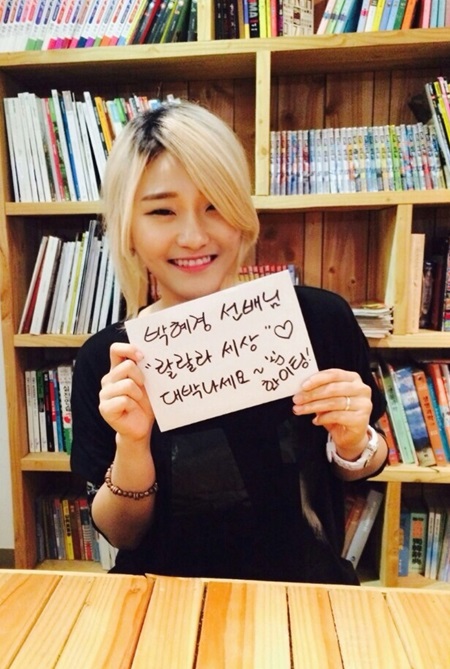 박혜경 선배님
"랄랄라 세상" ♡
대박나세요~ 화이팅!